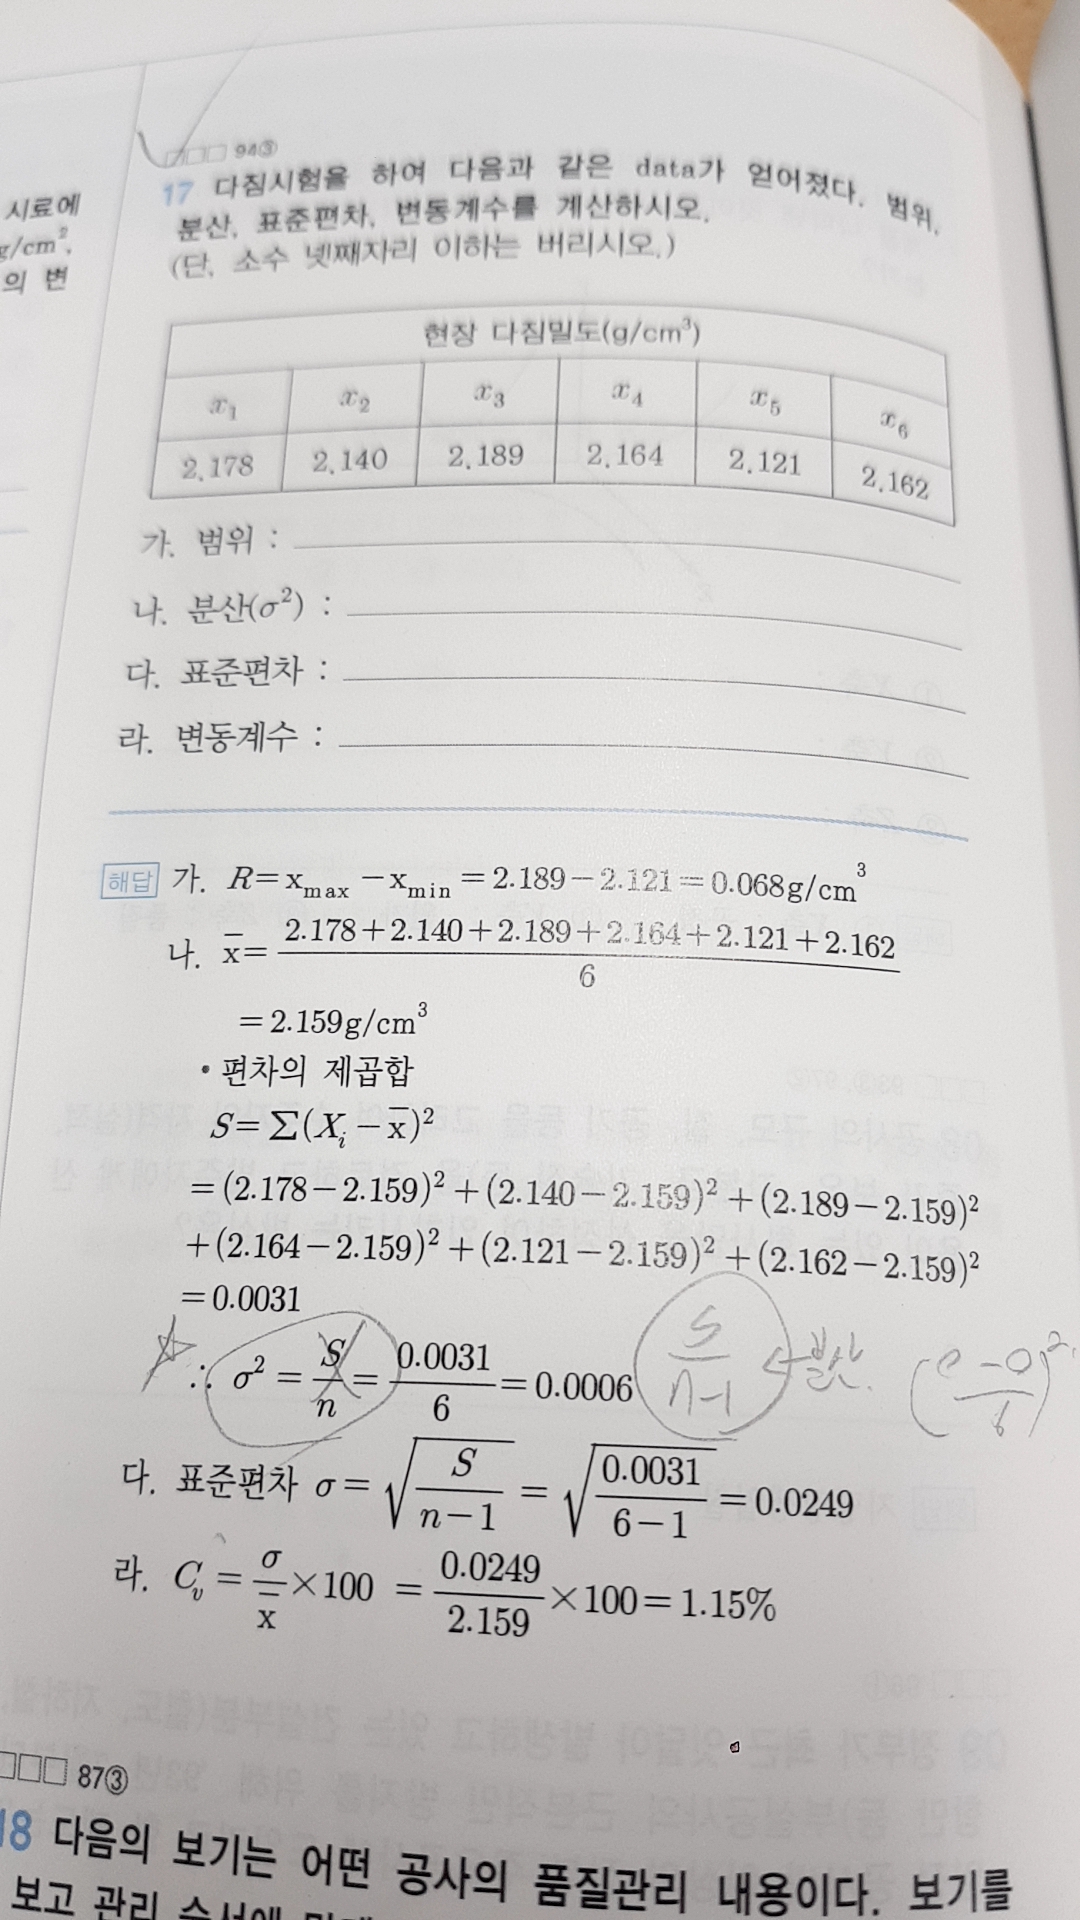 시료에
g/cm²,
의 변
□□□ 94③
17 다짐시험을 하여 다음과 같은 data가 얻어졌다. 범위,
분산, 표준편차, 변동계수를 계산하시오.
(단, 소수 넷째자리 이하는 버리시오.)
현장 다짐밀도(g/cm³)
x₁ x₂ x₃ x₄ x₅ x₆
2.178 2.140 2.189 2.164 2.121 2.162
가. 범위 :
나. 분산(σ²) :
다. 표준편차 :
라. 변동계수 :
해답 가. R=x_max −x_min =2.189−2.121=0.068g/cm³
나. x̄= (2.178+2.140+2.189+2.164+2.121+2.162)/6
=2.159g/cm³
• 편차의 제곱합
S=∑(X_i −x̄)²
=(2.178−2.159)²+(2.140−2.159)²+(2.189−2.159)²
+(2.164−2.159)²+(2.121−2.159)²+(2.162−2.159)²
=0.0031
∴ σ² = S/n = 0.0031/6 =0.0006 S/n-1 ← 분산. (0-0/6)²
다. 표준편차 σ= √(S/(n−1)) = √(0.0031/(6−1)) =0.0249
라. C_v = σ/x̄ ×100 = 0.0249/2.159 ×100=1.15%
□□□ 87③
18 다음의 보기는 어떤 공사의 품질관리 내용이다. 보기를
보고 관리